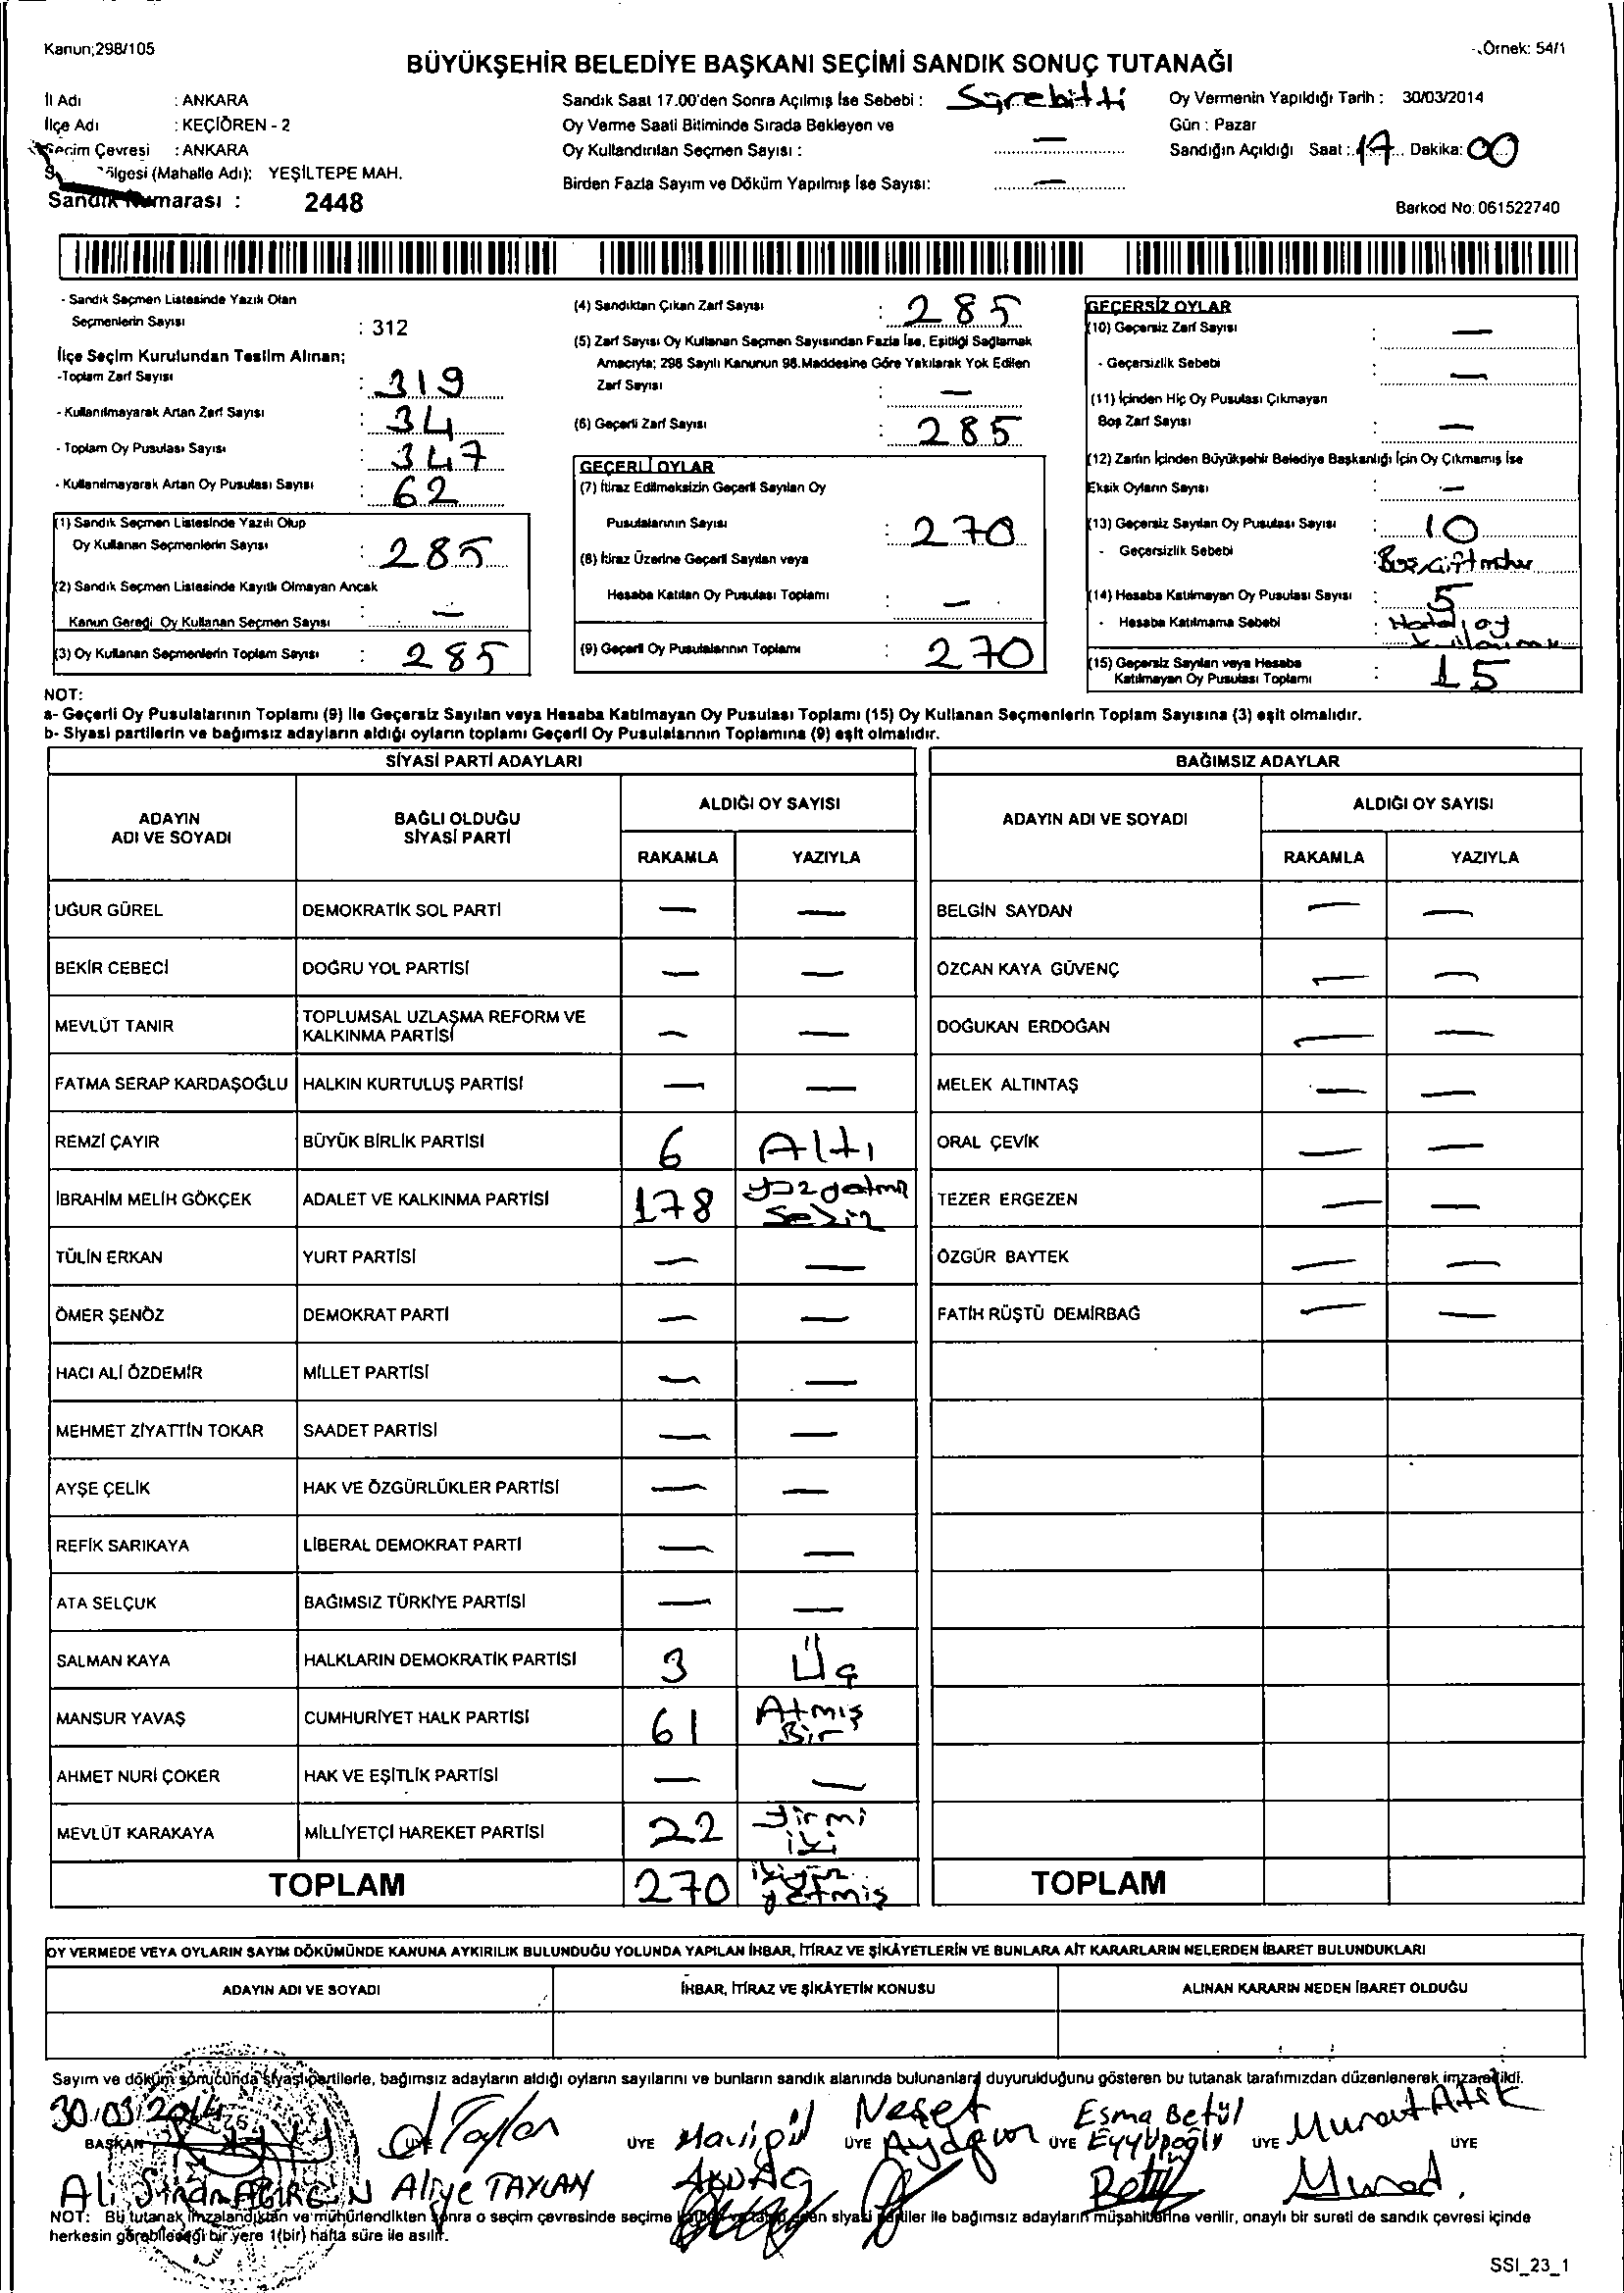 Kanun;298/105
Örnek: 54/1
BÜYÜKŞEHİR BELEDİYE BAŞKANI SEÇİMİ SANDIK SONUÇ TUTANAĞI
İl Adı : ANKARA
İlçe Adı : KEÇİÖREN - 2
Seçim Çevresi : ANKARA
Bölgesi (Mahalle Adı): YEŞİLTEPE MAH.
Sandık Numarası : 2448
Sandık Saat 17.00'den Sonra Açılmış İse Sebebi : Süre bitti
Oy Verme Saati Bitiminde Sırada Bekleyen ve
Oy Kullandırılan Seçmen Sayısı : —
Birden Fazla Sayım ve Döküm Yapılmış İse Sayısı: —
Oy Vermenin Yapıldığı Tarih : 30/03/2014
Gün : Pazar
Sandığın Açıldığı Saat : 17 Dakika: 00
Barkod No: 061522740
- Sandık Seçmen Listesinde Yazılı Olan
Seçmenlerin Sayısı : 312
İlçe Seçim Kurulundan Teslim Alınan;
-Toplam Zarf Sayısı : 319
- Kullanılmayarak Artan Zarf Sayısı : 34
- Toplam Oy Pusulası Sayısı : 347
- Kullanılmayarak Artan Oy Pusulası Sayısı : 62
(1) Sandık Seçmen Listesinde Yazılı Olup
Oy Kullanan Seçmenlerin Sayısı : 285
(2) Sandık Seçmen Listesinde Kayıtlı Olmayan Ancak
Kanun Gereği Oy Kullanan Seçmen Sayısı : —
(3) Oy Kullanan Seçmenlerin Toplam Sayısı : 285
(4) Sandıktan Çıkan Zarf Sayısı : 285
(5) Zarf Sayısı Oy Kullanan Seçmen Sayısından Fazla İse, Eşitliği Sağlamak
Amacıyla; 298 Sayılı Kanunun 98.Maddesine Göre Yakılarak Yok Edilen
Zarf Sayısı : —
(6) Geçerli Zarf Sayısı : 285
GEÇERLİ OYLAR
(7) İtiraz Edilmeksizin Geçerli Sayılan Oy
Pusulalarının Sayısı : 270
(8) İtiraz Üzerine Geçerli Sayılan veya
Hesaba Katılan Oy Pusulası Toplamı : —
(9) Geçerli Oy Pusulalarının Toplamı : 270
GEÇERSİZ OYLAR
(10) Geçersiz Zarf Sayısı : —
- Geçersizlik Sebebi : —
(11) İçinden Hiç Oy Pusulası Çıkmayan
Boş Zarf Sayısı : —
(12) Zarfın İçinden Büyükşehir Belediye Başkanlığı İçin Oy Çıkmamış İse
Eksik Oyların Sayısı : —
(13) Geçersiz Sayılan Oy Pusulası Sayısı : 10
- Geçersizlik Sebebi : Boş, çift mühür
(14) Hesaba Katılmayan Oy Pusulası Sayısı : 5
- Hesaba Katılmama Sebebi : Hatalı oy
(15) Geçersiz Sayılan veya Hesaba
Katılmayan Oy Pusulası Toplamı : 15
NOT:
a- Geçerli Oy Pusulalarının Toplamı (9) ile Geçersiz Sayılan veya Hesaba Katılmayan Oy Pusulası Toplamı (15) Oy Kullanan Seçmenlerin Toplam Sayısına (3) eşit olmalıdır.
b- Siyasi partilerin ve bağımsız adayların aldığı oyların toplamı Geçerli Oy Pusulalarının Toplamına (9) eşit olmalıdır.
SİYASİ PARTİ ADAYLARI
ADAYIN ADI VE SOYADI
BAĞLI OLDUĞU SİYASİ PARTİ
ALDIĞI OY SAYISI
RAKAMLA YAZIYLA
UĞUR GÜREL DEMOKRATİK SOL PARTİ — —
BEKİR CEBECİ DOĞRU YOL PARTİSİ — —
MEVLÜT TANIR TOPLUMSAL UZLAŞMA REFORM VE KALKINMA PARTİSİ — —
FATMA SERAP KARDAŞOĞLU HALKIN KURTULUŞ PARTİSİ — —
REMZİ ÇAYIR BÜYÜK BİRLİK PARTİSİ 6 Altı
İBRAHİM MELİH GÖKÇEK ADALET VE KALKINMA PARTİSİ 178 yüzyetmiş Sekiz
TÜLİN ERKAN YURT PARTİSİ — —
ÖMER ŞENÖZ DEMOKRAT PARTİ — —
HACI ALİ ÖZDEMİR MİLLET PARTİSİ — —
MEHMET ZİYATTİN TOKAR SAADET PARTİSİ — —
AYŞE ÇELİK HAK VE ÖZGÜRLÜKLER PARTİSİ — —
REFİK SARIKAYA LİBERAL DEMOKRAT PARTİ — —
ATA SELÇUK BAĞIMSIZ TÜRKİYE PARTİSİ — —
SALMAN KAYA HALKLARIN DEMOKRATİK PARTİSİ 3 Üç
MANSUR YAVAŞ CUMHURİYET HALK PARTİSİ 61 Atmış Bir
AHMET NURİ ÇOKER HAK VE EŞİTLİK PARTİSİ — —
MEVLÜT KARAKAYA MİLLİYETÇİ HAREKET PARTİSİ 22 yirmi iki
TOPLAM 270 ikiyüz yetmiş
BAĞIMSIZ ADAYLAR
ADAYIN ADI VE SOYADI
ALDIĞI OY SAYISI
RAKAMLA YAZIYLA
BELGİN SAYDAN — —
ÖZCAN KAYA GÜVENÇ — —
DOĞUKAN ERDOĞAN — —
MELEK ALTINTAŞ — —
ORAL ÇEVİK — —
TEZER ERGEZEN — —
ÖZGÜR BAYTEK — —
FATİH RÜŞTÜ DEMİRBAĞ — —
TOPLAM
OY VERMEDE VEYA OYLARIN SAYIM DÖKÜMÜNDE KANUNA AYKIRILIK BULUNDUĞU YOLUNDA YAPILAN İHBAR, İTİRAZ VE ŞİKÂYETLERİN VE BUNLARA AİT KARARLARIN NELERDEN İBARET BULUNDUKLARI
ADAYIN ADI VE SOYADI
İHBAR, İTİRAZ VE ŞİKÂYETİN KONUSU
ALINAN KARARIN NEDEN İBARET OLDUĞU
Sayım ve döküm sonucunda siyasi partilerle, bağımsız adayların aldığı oyların sayılarını ve bunların sandık alanında bulunanlara duyurulduğunu gösteren bu tutanak tarafımızdan düzenlenerek imzalanıldı.
30/03/2014 ATaylan Neşet Esma Betül Murat Atik
BAŞKAN ÜYE ÜYE ÜYE ÜYE ÜYE
Eyyüpoğlu
Ali Aliye TAYLAN
NOT: Bu tutanak imzalandıktan ve mühürlendikten sonra o seçim çevresinde seçime katılan siyasi partiler ile bağımsız adayların müşahitlerine verilir, onaylı bir sureti de sandık çevresi içinde
herkesin görebileceği bir yere 1(bir) hafta süre ile asılır.
SSI_23_1